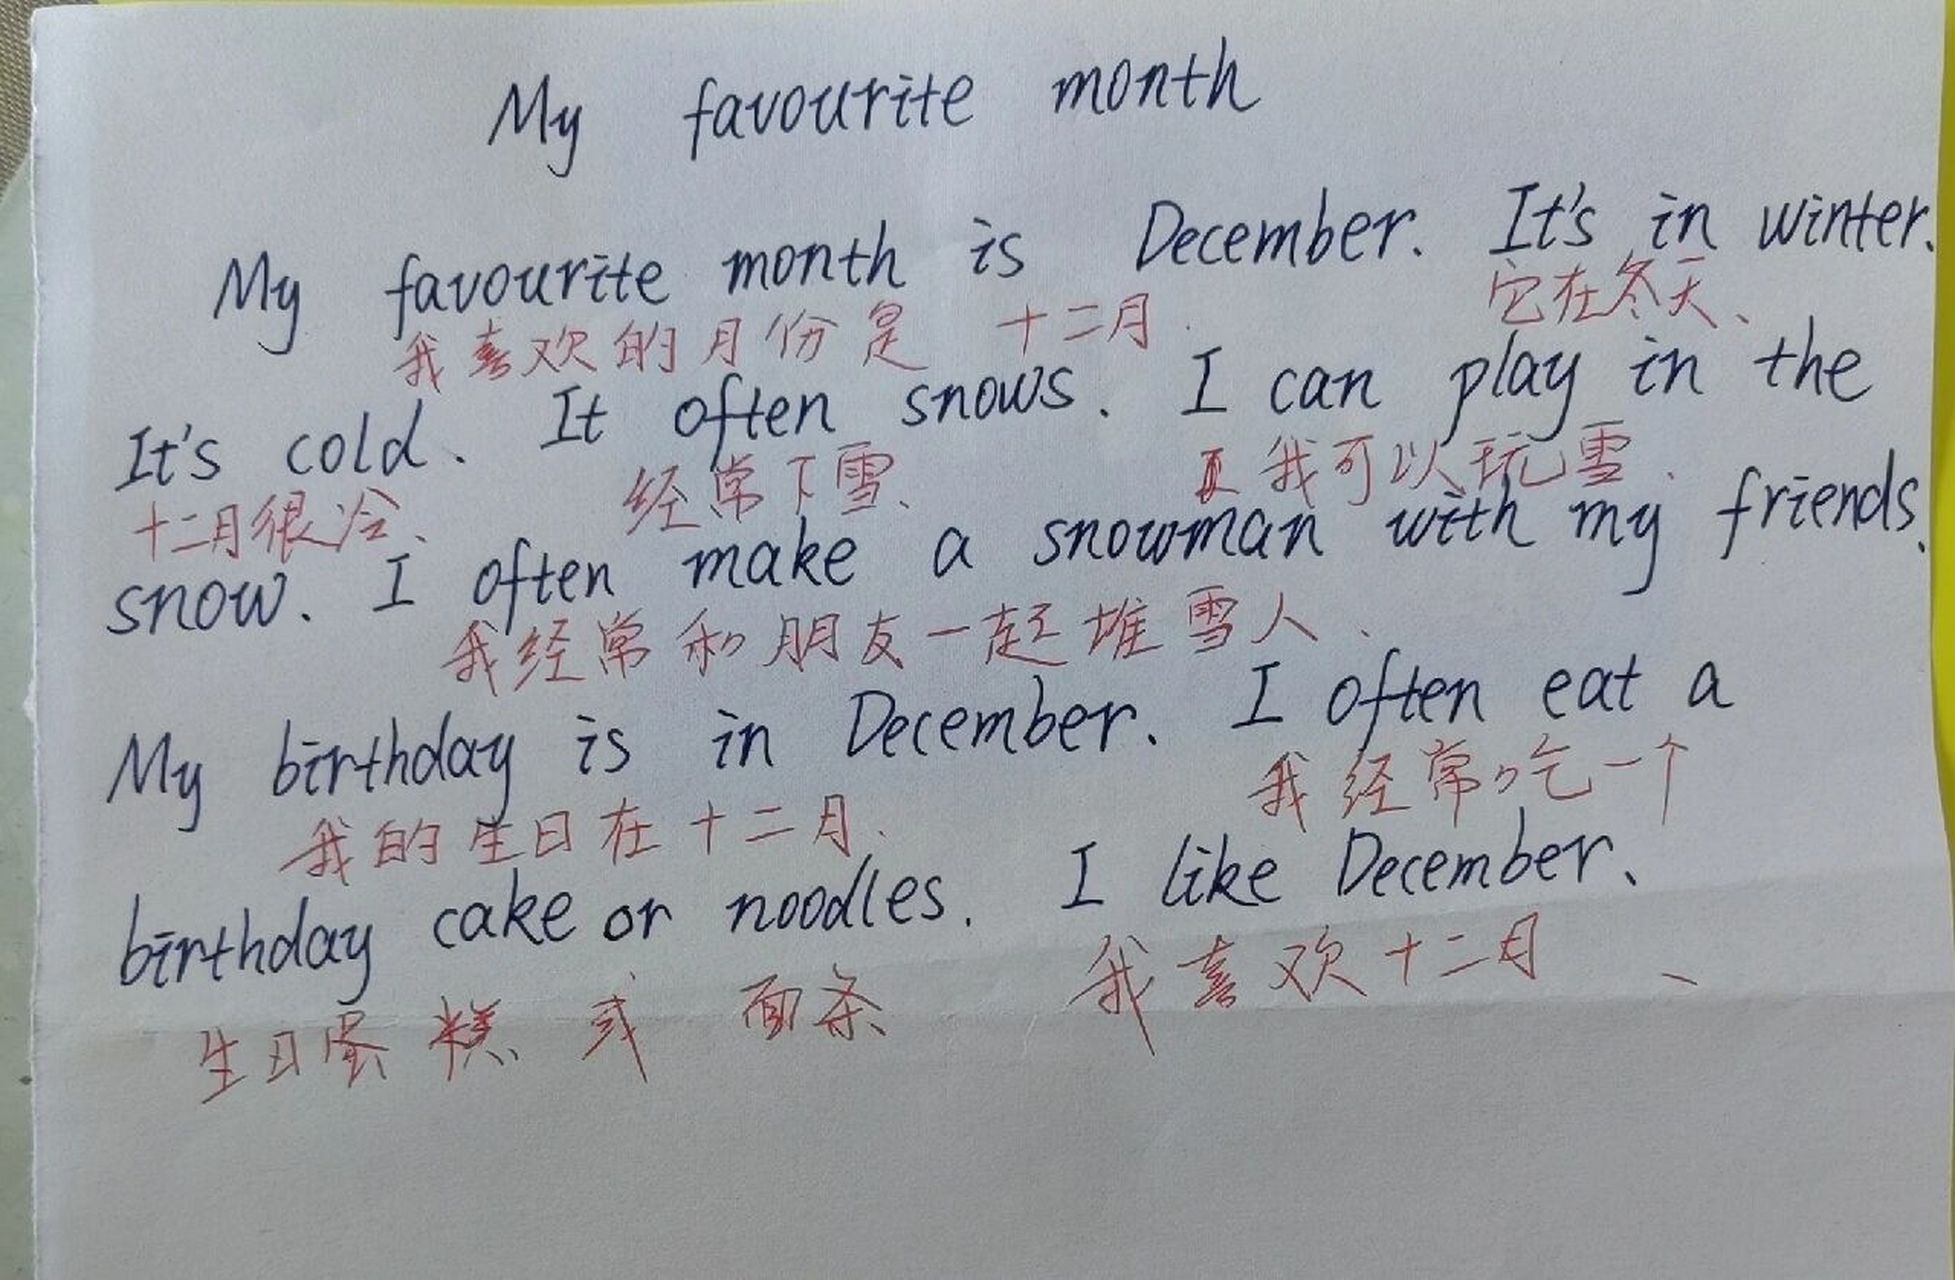 My favourite month
My favourite month is December. It's in winter.
我喜欢的月份是 十二月. 它在冬天、
It's cold. It often snows. I can play in the
十二月很冷、 经常下雪、 我可以玩雪.
snow. I often make a snowman with my friends.
我经常和朋友一起堆雪人、
My birthday is in December. I often eat a
我的生日在十二月. 我经常吃一个
birthday cake or noodles. I like December.
生日蛋糕或面条 我喜欢十二月、